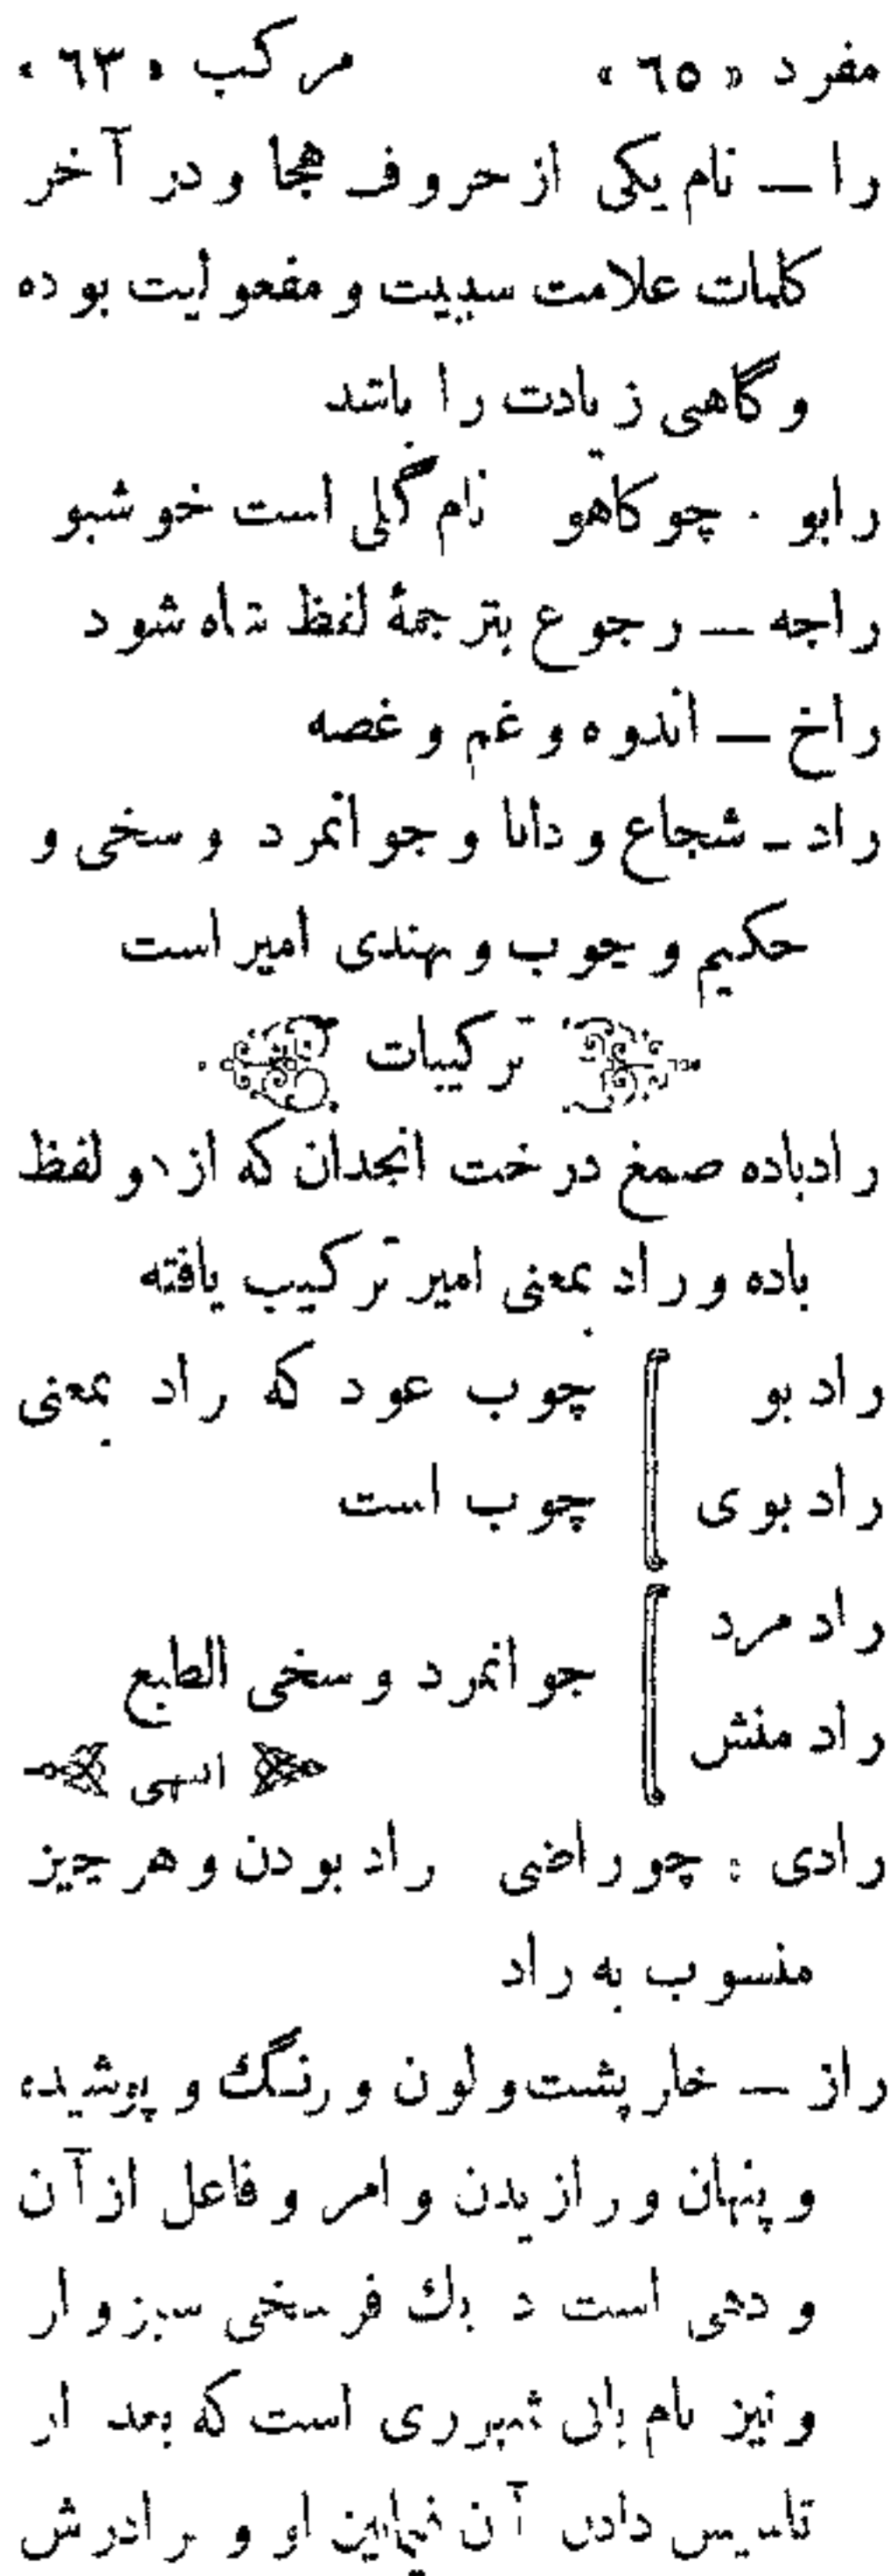 مفرد «٦٥» مركب «٦٣»
را — نام يكى از حروف هجا و در آخر
كلمات علامت سببيت و مفعوليت بوده
و گاهى زيادت را باشد
رابو . چو كاهو نام گلى است خوشبو
راجه — رجوع بترجمهٔ لفظ شاه شود
راخ — اندوه و غم و غصه
راد — شجاع و دانا و جوانمرد و سخى و
حكيم و چوب و بهندى امير است
تركيبات
رادباده صمغ درخت انجدان كه از دو لفظ
باده و راد بمعنى امير تركيب يافته
راد بو چوب عود كه راد بمعنى
راد بوى چوب است
راد مرد
جوانمرد و سخى الطبع
راد منش
انتهى
رادى : چو راضى راد بودن و هر چيز
منسوب به راد
راز — خارپشت و لون و رنگ و پوشيده
و پنهان و رازيدن و امر و فاعل از آن
و دهى است د يك فرسخى سبزوار
و نيز نام بانى شهر رى است كه بعد از
تاسيس دادن آن فيمابين او و برادرش